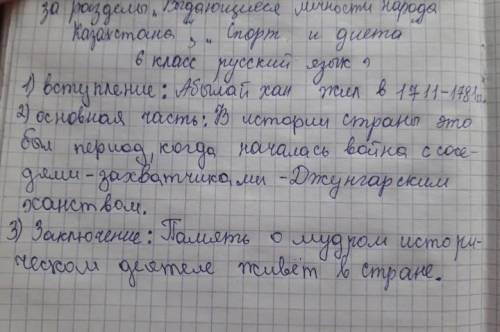 за разделы „Выдающиеся личности народа
Казахстана „, „ Спорт и диета
6 класс русский язык?
1) вступление: Абылай хан жил в 1711-1781г.
2) основная часть: В истории страны это
был период, когда началась война с сосе-
дями-захватчиками -Джунгарским
ханством.
3) Заключение: Память о мудром истори-
ческом деятеле живёт в стране.